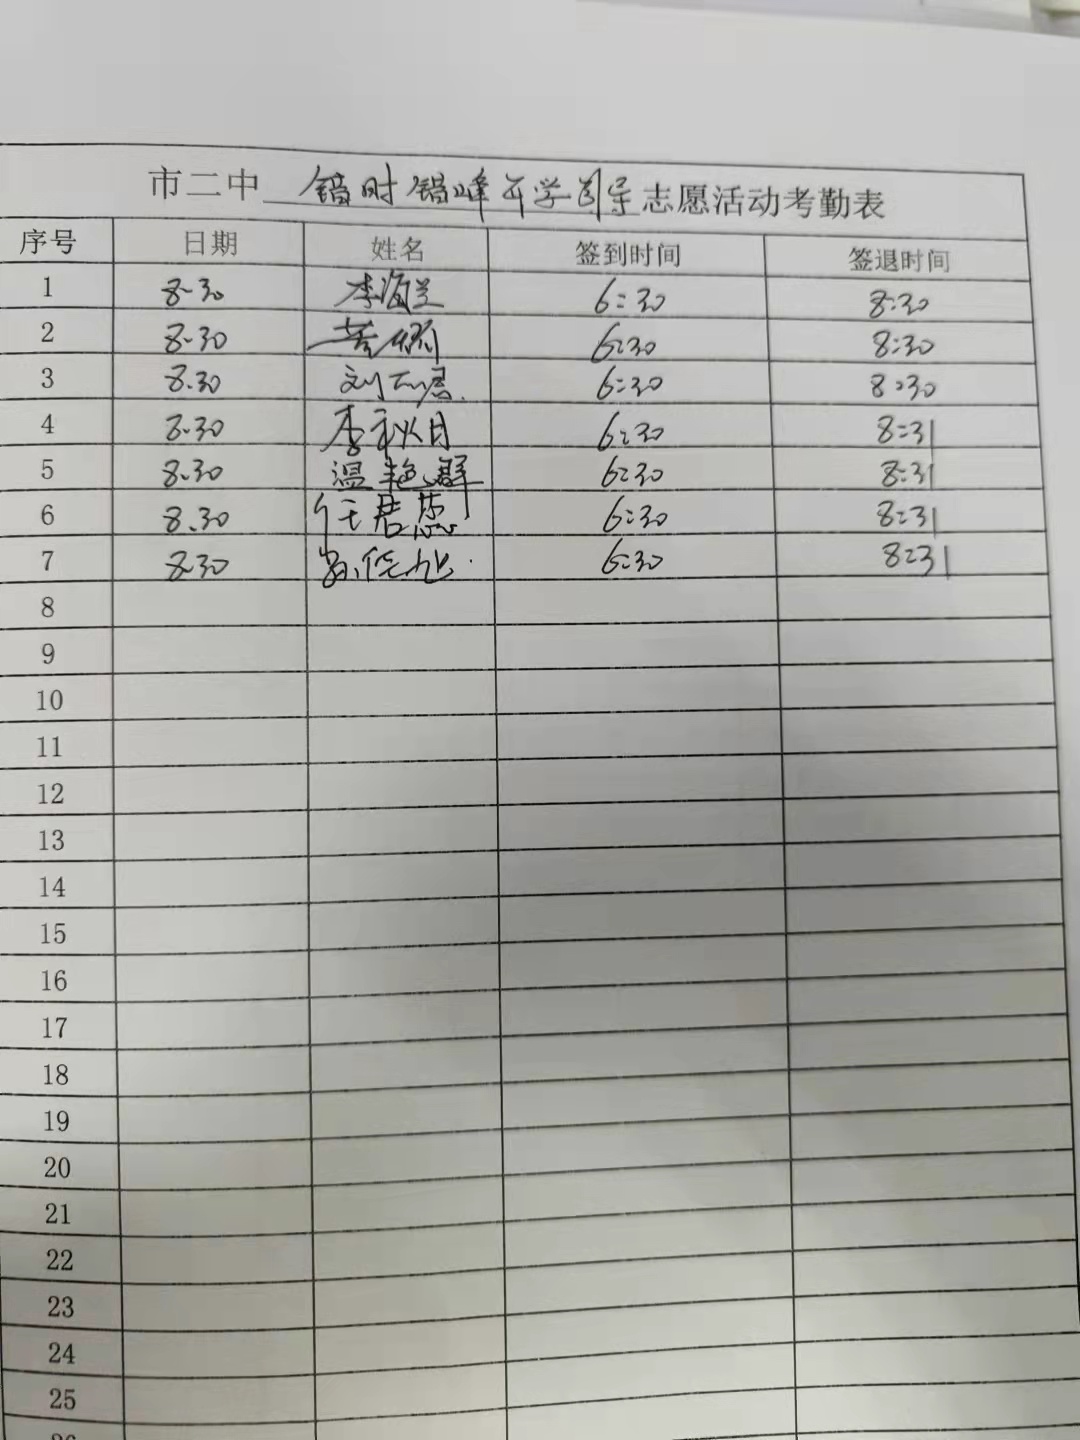 市二中 错时错峰开学引导 志愿活动考勤表
序号 日期 姓名 签到时间 签退时间
1 8-30 李海兰 6:30 8:30
2 8-30 6:30 8:30
3 8.30 刘 6:30 8:30
4 8.30 李秋月 6:30 8:31
5 8.30 温艳群 6:30 8:31
6 8.30 任君慈 6:30 8:31
7 8.30 6:30 8:31
8
9
10
11
12
13
14
15
16
17
18
19
20
21
22
23
24
25
26